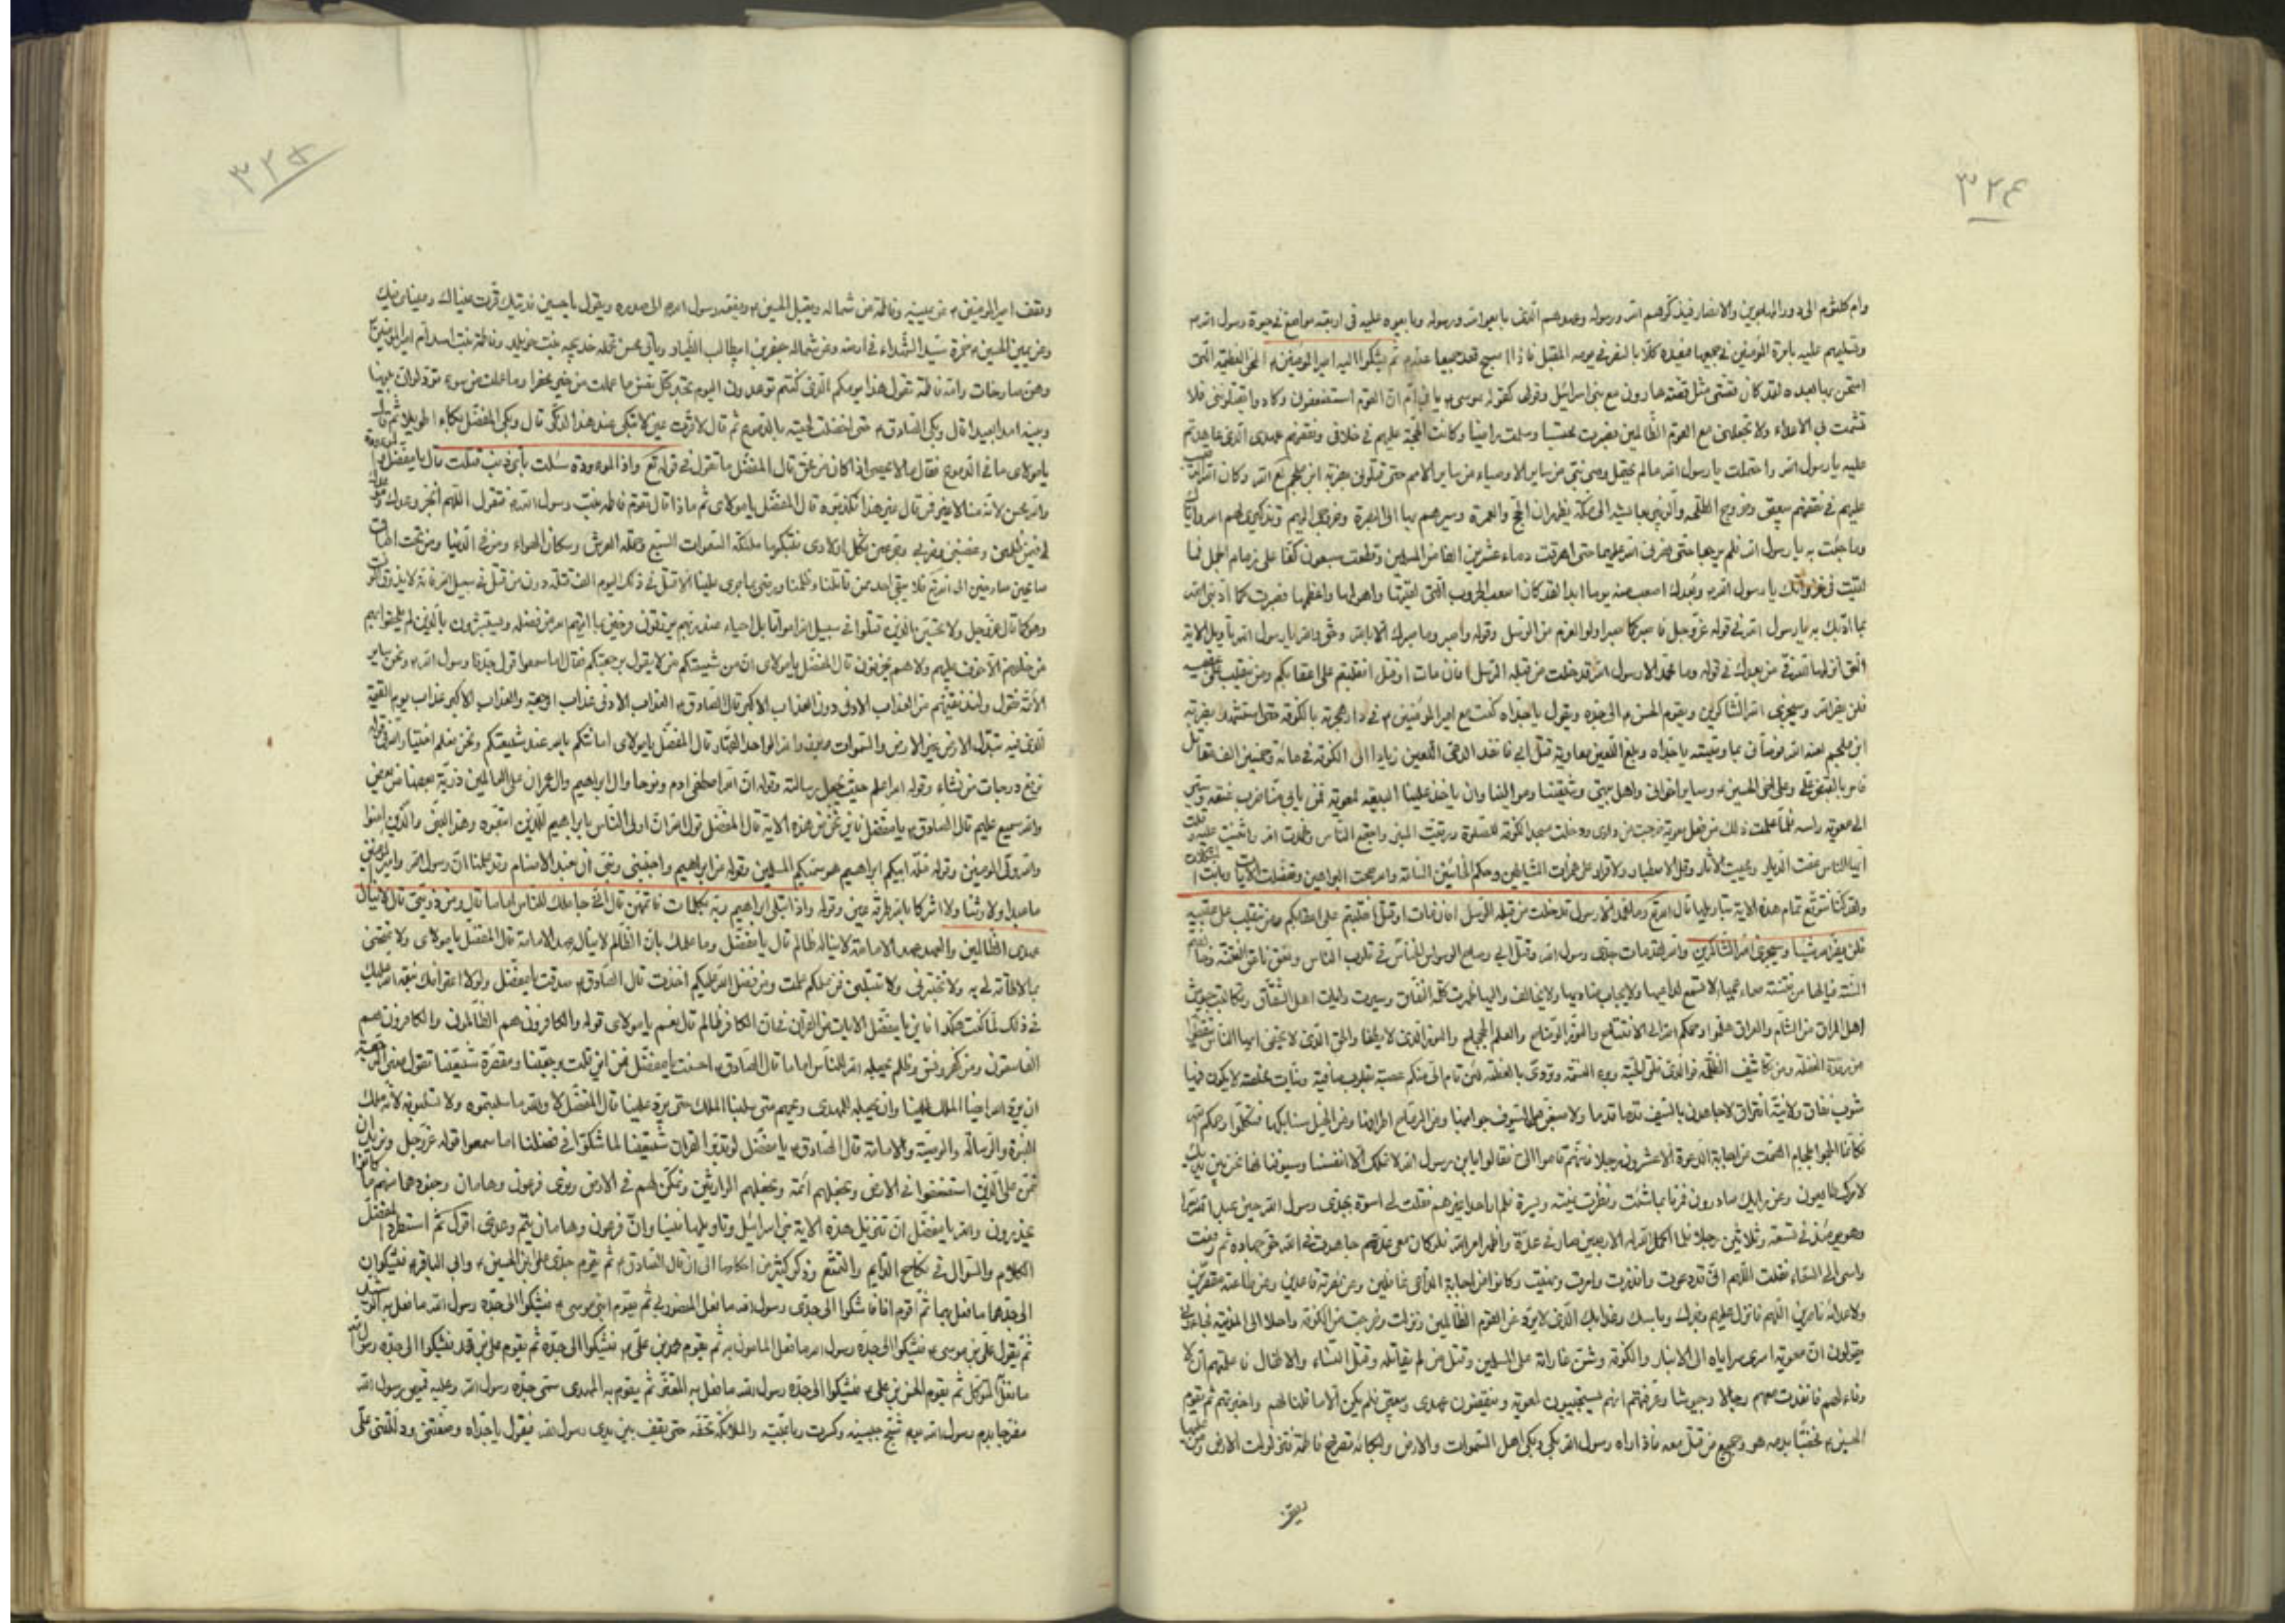 ٣٢٤
وام كلثوم الى دور المهاجرين والانصار فيذكرهم الله ورسوله وعهدهم الذى بايعوا الله ورسوله وبايعوه عليه فى اربعة مواضع فى حيوة رسول الله
وتسليمهم عليه بامرة المؤمنين فى جميعها فيعده كلا بالنصر فى يومه المقبل فاذا اصبح قعد جميعا عنه ثم يشكوا اليه امير المؤمنين المحن العظيمة التى
امتحن بها بعده لقد كان قصتى مثل قصة هارون مع بنى اسرائيل وقولى كقوله لموسى يا ابن ام ان القوم استضعفونى وكادوا يقتلوننى فلا
تشمت بى الاعداء ولا تجعلنى مع القوم الظالمين فصبرت محتسبا وسلمت راضيا وكانت الحجة عليهم فى خلافى ونقضهم عهدى الذى عاهدتهم
عليه يا رسول الله واحتملت يا رسول الله ما لم يحتمل وصى نبى من سائر الاوصياء من سائر الامم حتى قتلونى بضربة ابن ملجم لع الله وكان الله الرقيب
عليهم فى نقضهم بيعتى وخروج طلحة والزبير بعايشة الى مكة يظهران الحج والعمرة وسيرهم بها الى البصرة وخروجى اليهم وتذكيرى لهم الله واياك
وما جئت به يا رسول الله فلم يرجعا حتى نصرنى الله عليهما حتى اهرقت دماء عشرين الفا من المسلمين وقطعت سبعون كفا على زمام الجمل فما
لقيت فى غزواتك يا رسول الله وبعدك اصعب منه يوما ابدا لقد كان اصعب الحروب التى لقيتها واهولها واعظمها فصبرت كما ادبنى الله
بما ادبك به يا رسول الله فى قوله عز وجل فاصبر كما صبر اولوا العزم من الرسل وقوله واصبر وما صبرك الا بالله وحق والله يا رسول الله تاويل الاية
التى انزلها الله فى من بعدك فى قوله وما محمد الا رسول الله قد خلت من قبله الرسل افان مات او قتل انقلبتم على اعقابكم ومن ينقلب على عقبيه
فلن يضر الله وسيجزى الله الشاكرين ويقوم الحسن الى جده ويقول يا جداه كنت مع امير المؤمنين فى دار هجرته بالكوفة حتى استشهد بضربة
ابن ملجم لعنه الله فوصانى بما وصيته يا جداه وبلغ اللعين معاوية قتل ابى فانفذ الدعى اللعين زيادا الى الكوفة فى مائة وخمسين الف مقاتل
فامر بالقبض على وعلى اخى الحسين وسائر اخوانى واهل بيتى وشيعتنا وموالينا وان ياخذ علينا البيعة لمعوية فمن يابى منا ضرب عنقه وسير
الى معوية راسه فلما علمت ذلك من فعل معوية خرجت من دارى ودخلت مسجد الكوفة للصلوة ورقيت المنبر واجتمع الناس وحمدت الله واثنيت عليه وقلت
ايها الناس عفت الديار ومحيت الاثار وقل الاصطبار ولا قرار على همزات الشياطين وحكم الخائنين الساعة والله صحت البراهين وفصلت الايات وبانت المشكلات
ولقد كنا نتوقع تمام هذه الاية بتاويلها قال الله تع وما محمد الا رسول قد خلت من قبله الرسل افان مات او قتل انقلبتم على اعقابكم ومن ينقلب على عقبيه
فلن يضر الله شيئا وسيجزى الله الشاكرين والله لقد مات جدى رسول الله وقتل ابى وصاح الوسواس الخناس فى قلوب الناس ونعق ناعق الفتنة وخالفتم
السنة فيالها من فتنة صماء عمياء لا تسمع لداعيها ولا يجاب مناديها ولا يخالف واليها ظهرت كلمة النفاق وسيرت رايات اهل الشقاق وتكالبت جيوش
اهل المراق من الشام والعراق هلموا رحمكم الله الى الافتتاح والنور الوضاح والعلم الجحجاح والنور الذى لا يطفأ والحق الذى لا يخفى ايها الناس تيقظوا
من رقدة الغفلة ومن تكاثيف الظلمة فوالذى فلق الحبة وبرء النسمة وتردى بالعظمة لئن قام الى منكم عصبة بقلوب صافية ونيات مخلصة لا يكون فيها
شوب نفاق ولا نية افتراق لاجاهدن بالسيف قدما قدما ولاضيقن من السيوف جوانبها ومن الرماح اطرافها ومن الخيل سنابكها فتكلموا رحمكم الله
فكانما الجموا بلجام الصمت عن اجابة الدعوة الا عشرون رجلا فانهم قاموا الى فقالوا يا ابن رسول الله لا نملك الا انفسنا وسيوفنا فها نحن بين يديك
لامرك طائعون وعن رايك صادرون فمرنا بما شئت فنظرت يمنة ويسرة فلم ار احدا غيرهم فقلت لى اسوة بجدى رسول الله حين عبد الله سرا
وهو يومئذ فى تسعة وثلاثين رجلا فلما اكمل الله له الاربعين صار فى عدة واظهر امر الله فلو كان معى عدتهم جاهدت فى الله حق جهاده ثم رفعت
راسى الى السماء فقلت اللهم انى قد دعوت وانذرت وامرت ونهيت وكانوا عن اجابة الداعى غافلين وعن نصرته قاعدين وعن طاعته مقصرين
ولاعدائه ناصرين اللهم فانزل عليهم رجزك وباسك وعذابك الذى لا يرد عن القوم الظالمين ونزلت وخرجت من الكوفة راحلا الى المدينة فجاءونى
يقولون ان معوية اسرى سراياه الى الانبار والكوفة وشن غاراته على المسلمين وقتل من لم يقاتله وقتل النساء والاطفال فاعلمتهم ان لا
وفاء لهم فانفذت معهم رجالا وجيوشا وعرفتهم انهم يستجيبون لمعوية وينقضون عهدى وبيعتى فلم يكن الا ما قلت لهم واخبرتهم ثم يقوم
الحسين مخضبا بدمه هو وجميع من قتل معه فاذا راه رسول الله بكى وبكى اهل السموات والارض لبكائه وتصرخ فاطمة فتزلزلت الارض ومن عليها
ويقف
٣٢٥
وتقف امير المؤمنين عن يمينه وفاطمة عن شماله ويقبل الحسين ويضمه رسول الله الى صدره ويقول يا حسين فديتك قرت عيناك وعيناى فيك
وعن يمين الحسين حمزة سيد الشهداء فى ارضه وعن شماله جعفر بن ابيطالب الطيار وياتى محسن تحمله خديجة بنت خويلد وفاطمة بنت اسد ام امير المؤمنين
وهن صارخات وامه فاطمة تقول هذا يومكم الذى كنتم توعدون اليوم تجد كل نفس ما عملت من خير محضرا وما عملت من سوء تود لو ان بينها
وبينه امدا بعيدا قال وبكى الصادق حتى اخضلت لحيته بالدموع ثم قال لا قرت عين لا تبكى عند هذا الذكر قال وبكى المفضل بكاء طويلا ثم قال
يا مولاى ما فى الدموع فقال ما لا يحصى اذا كان من محق قال المفضل ما تقول فى قوله تع واذا الموءودة سئلت باى ذنب قتلت قال يا مفضل الموءودة
والله محسن لانه منا لا غير فمن قال غير هذا فكذبوه قال المفضل يا مولاى ثم ماذا قال تقوم فاطمة بنت رسول الله فتقول اللهم انجز وعدك وموعدك
لى فيمن ظلمنى وغصبنى وضربنى وجزعنى بكل اولادى فتبكيها ملئكة السموات السبع وحملة العرش وسكان الهواء ومن فى الدنيا ومن تحت اطباق
صائحين صارخين الى الله تع فلا يبقى احد ممن قاتلنا وظلمنا ورضى بما جرى علينا الا قتل فى ذلك اليوم الف قتلة دون من قتل فى سبيل الله فانه لا يذوق الموت
وهو كما قال عز وجل ولا تحسبن الذين قتلوا فى سبيل الله امواتا بل احياء عند ربهم يرزقون فرحين بما اتيهم الله من فضله ويستبشرون بالذين لم يلحقوا بهم
من خلفهم الا خوف عليهم ولا هم يحزنون قال المفضل يا مولاى ان من شيعتكم من لا يقول برجعتكم فقال اما سمعوا قول جدنا رسول الله ونحن ساير
الائمة نقول ولنذيقنهم من العذاب الادنى دون العذاب الاكبر قال الصادق العذاب الادنى عذاب الرجعة والعذاب الاكبر عذاب يوم القيمة
الذى فيه تبدل الارض غير الارض والسموات وبرزوا لله الواحد القهار قال المفضل يا مولاى امامتكم ثابتة عند شيعتكم ونحن نعلم اختيار الله فى قوله
نرفع درجات من نشاء وقوله الله اعلم حيث يجعل رسالته وقوله ان الله اصطفى ادم ونوحا وال ابراهيم وال عمران على العالمين ذرية بعضها من بعض
والله سميع عليم قال الصادق يا مفضل فاين نحن من هذه الاية قال المفضل قول الله ان اولى الناس بابراهيم للذين اتبعوه وهذا النبى والذين امنوا
والله ولى المؤمنين وقوله ملة ابيكم ابراهيم هو سميكم المسلمين وقوله عن ابراهيم واجنبنى وبنى ان نعبد الاصنام وقد علمنا ان رسول الله وامير المؤمنين
ما عبدا ولا وثنا ولا اشركا بالله طرفة عين وقوله واذ ابتلى ابراهيم ربه بكلمات فاتمهن قال انى جاعلك للناس اماما قال ومن ذريتى قال لا ينال
عهدى الظالمين والعهد عهد الامامة لا يناله ظالم قال يا مفضل وما علمك بان الظالم لا ينال عهد الامامة قال المفضل يا مولاى لا تمتحنى
بما لا طاقة لى به ولا تختبرنى ولا تبتلنى فمن علمكم علمت ومن فضل الله عليكم اخذت قال الصادق صدقت يا مفضل ولولا اعترافك بنعمة الله عليك
فى ذلك لما كنت هكذا فاين يا مفضل الايات من القران فى ان الكافر ظالم قال نعم يا مولاى قوله والكافرون هم الظالمون والكافرون هم
الفاسقون ومن كفر وفسق وظلم لا يجعله الله للناس اماما قال الصادق احسنت يا مفضل فمن اين قلت برجعتنا ومقصرة شيعتنا تقول معنى الرجعة
ان يرد الله الينا الملك الدنيا وان يجعله للمهدى ويحهم متى سلبنا الملك حتى يرد علينا قال المفضل لا والله ما سلبتموه ولا تسلبونه لانه ملك
النبوة والرسالة والوصية والامامة قال الصادق يا مفضل لو تدبر القران شيعتنا لما شكوا فى فضلنا اما سمعوا قوله عز وجل ونريد ان
نمن على الذين استضعفوا فى الارض ونجعلهم ائمة ونجعلهم الوارثين ونمكن لهم فى الارض ونرى فرعون وهامان وجنودهما منهم ما كانوا
يحذرون والله يا مفضل ان تنزيل هذه الاية فى بنى اسرائيل وتاويلها فينا وان فرعون وهامان تيم وعدى اقول ثم استطرد المفضل
الكلام والسؤال فى نكاح الدايم والمتمتع وذكر كثير من احكامها الى ان قال الصادق ثم يقوم جدى على بن الحسين وابى الباقر فيشكوان
الى جدهما ما فعل بهما ثم اقوم انا فاشكوا الى جدى رسول الله ما فعل المنصور بى ثم يقوم ابنى موسى فيشكوا الى جده رسول الله ما فعل به الرشيد
ثم يقوم على بن موسى فيشكوا الى جده رسول الله ما فعل المامون به ثم يقوم محمد بن على فيشكوا الى جده ثم يقوم على بن محمد فيشكوا الى جده رسول الله
ما فعل المتوكل ثم يقوم الحسن بن على فيشكوا الى جده رسول الله ما فعل به المعتز ثم يقوم به المهدى سمى جده رسول الله وعليه قميص رسول الله
مضرجا بدم رسول الله يوم شج جبينه وكسرت رباعيته والملائكة تحفه حتى يقف بين يدى رسول الله فيقول يا جداه وصفتنى ودللتنى على